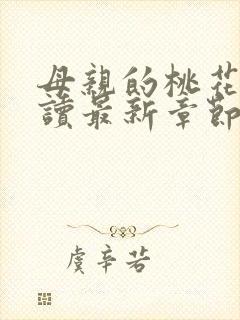 母親的桃花
讀最新章節
虞辛若